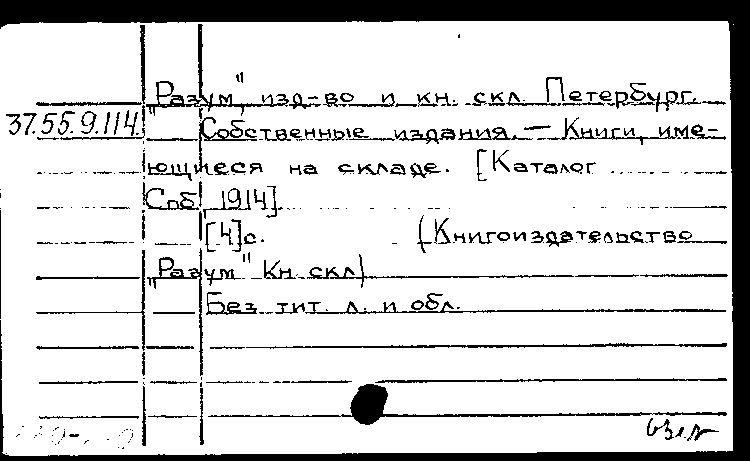 "Разум", изд-во и кн. скл. Петербург.
37.55.9.114. Собственные издания. — Книги, име-
ющиеся на складе. [Каталог
Спб, 1914].
[4]с. (Книгоиздательство
"Разум" Кн. скл)
Без тит. л. и обл.